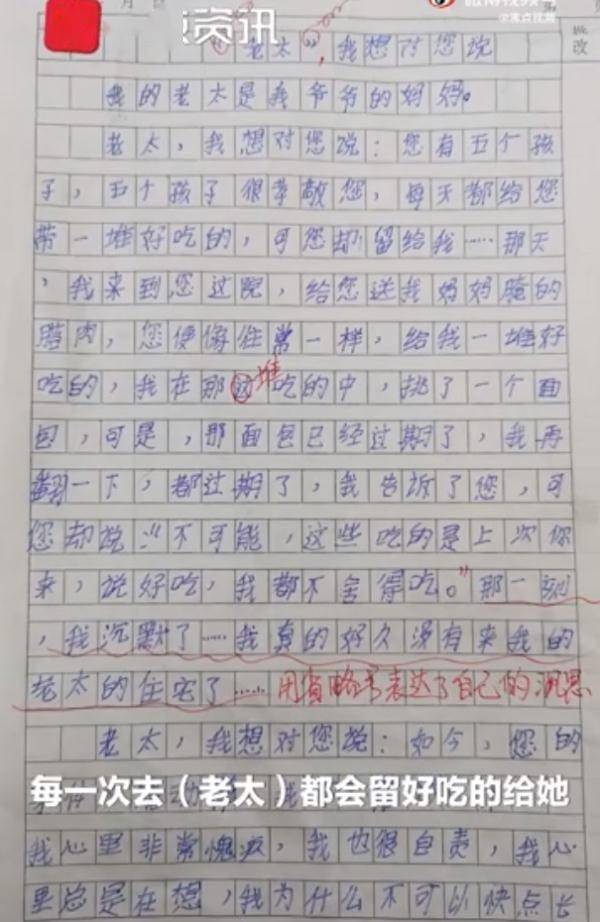 资讯
@沸点视频
批改
“老太”,我想对您说
我的老太是我爷爷的妈妈。
老太,我想对您说:您有五个孩
子,五个孩子很孝敬您,每天都给您
带一堆好吃的,可您却留给我……那天
,我来到您这院,给您送我妈妈腌的
腊肉,您便像往常一样,给我一堆好
吃的,我在那堆吃的中,挑了一个面
包,可是,那面包已经过期了,我再
翻一下,都过期了,我告诉了您,可
您却说:“不可能,这些吃的是上次你
来,说好吃,我都不舍得吃。”那一刻
,我沉默了……我真的好久没有来我的
老太的住宅了…… 用省略号表达了自己的沉思
老太,我想对您说:如今,您的
每一次去(老太)都会留好吃的给她
我心里非常愧疚,我也很自责,我心
里总是在想,我为什么不可以快点长